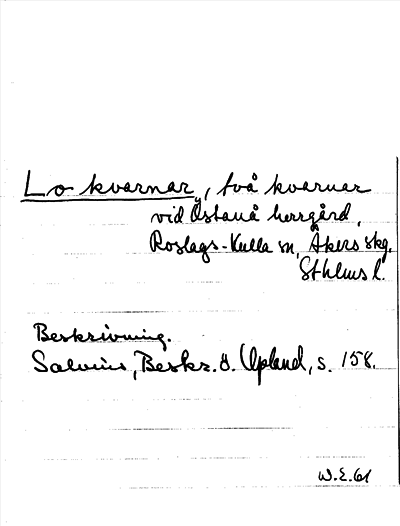 Lo kvarnar, två kvarnar
vid Östanå herrgård,
Roslags-Kulla sn, Åkers skg.
Sthlms l.
Beskrivning.
Salvius, Beskr. ö. Upland, s. 158.
W.E. 61